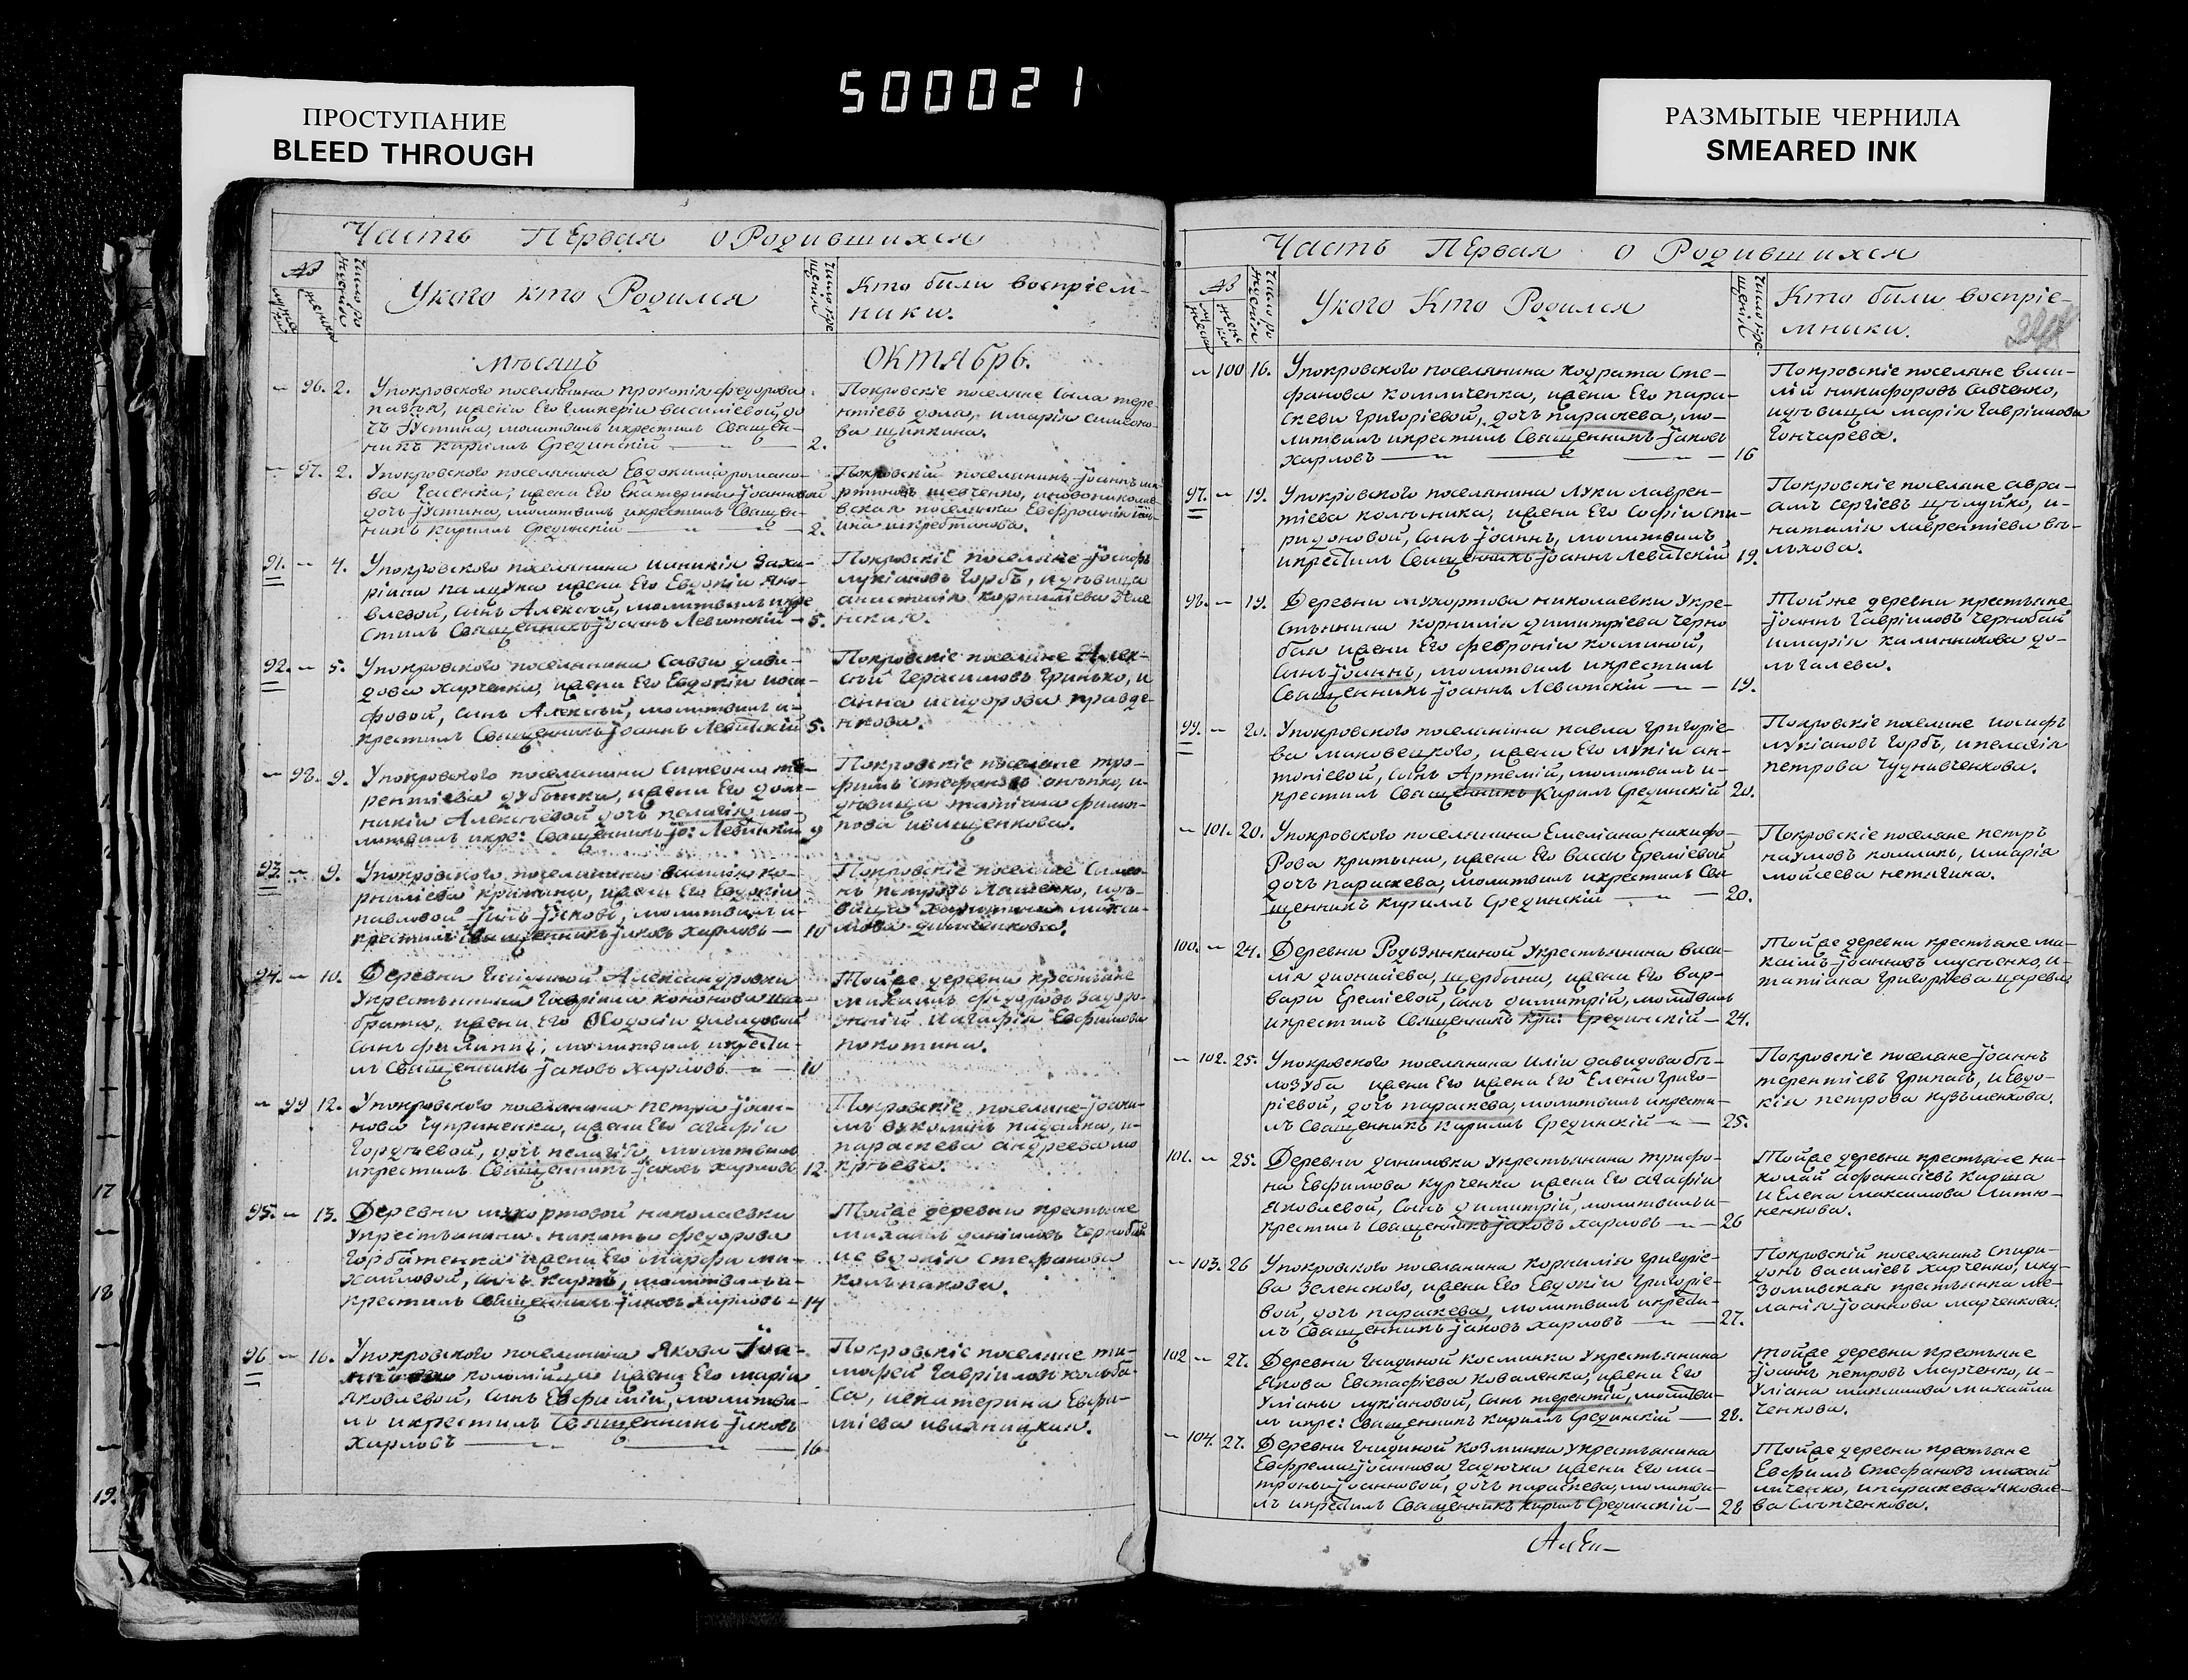 500021
ПРОСТУПАНИЕ
BLEED THROUGH
РАЗМЫТЫЕ ЧЕРНИЛА
SMEARED INK
Часть Первая о Родившихся
Укого кто Родился
Кто были воспрiем-
ники.
мѣсяцъ Октябрь.
96. 2. Упокровского поселянина прокопiя федорова
жены Его гликерiи василiевой, до
чь Iустина, молитвилъ икрестилъ Священ-
никъ Кирилъ Срединскiй 2.
Покровскiе поселяне Сила тере-
нтiевъ дола, имарiя симеоно-
ва щипкина.
97. 2. Упокровского поселянина Евдокима романо-
ва Гасенка, жены Его Екатерины Iоанновой
дочь Iустина, молитвилъ икрестилъ Священ-
никъ Кирилъ Срединскiй 2.
Покровскiй поселянинъ Iоаннъ ма-
ртиновъ шевченко, иновониколае-
вская поселянка Евфросинiя
91. 4. Упокровского поселянина Заха-
рiина палщука жены Его Евдокiи Яко-
влевой, сынъ Алексѣй, молитвилъ икре
стилъ Священникъ Iоаннъ Левитскiй 5.
Покровскiе поселяне Iосифъ
лукiановъ Горбъ, идѣвица
анастасiя корнилiева
92. 5. Упокровского поселянина Саввы дави-
дова харченка, жены Его Евдокiи иоси-
фовой, сынъ Алексѣй, молитвилъ и-
крестилъ Священникъ Iоаннъ Левитскiй 5.
Покровскiе поселяне Алек-
сѣй Герасимовъ Гринько, и
анна исидорова правде-
нкова.
98. 9. Упокровского поселянина Симеона те-
рентiева дубынки, жены Его дом-
никiи Алексѣевой дочь пелагiя мо-
литвилъ икре: Священникъ Iо: Левитскiй 9
Покровскiе поселяне тро-
фимъ Стефановъ онѣпко, и-
дѣвица татiана филип-
пова иващенкова.
93. 9. Упокровского поселянина василiя ко-
рнилiева критини, жены Его Евдокiи
павловой сынъ Iаковъ, молитвилъ и-
крестилъ Священникъ Iаковъ харловъ 10
Покровскiе поселяне Симео-
нъ петровъ Ляшенко, идѣ-
вица харитина макси-
мова дитченкова.
94. 10. Деревни Гнидиной Александровки
укрестьянина Гаврiила кононова ша-
брата, жены Его Феодосiи давидовой
сынъ филиппъ, молитвилъ икрести-
лъ Священникъ Iаковъ харловъ 10
Тойже деревни крестьяне
михаилъ федоровъ задоро-
жнiй иагафiя Евфимова
покотина.
99 12. Упокровского поселянина петра Iоан-
нова Чуприненка, жены Его агафiи
Гордѣевой, дочь пелагiя, молитвилъ
икрестилъ Священникъ Iаковъ харловъ 12
Покровскiе поселяне Iоаки-
параскева андреева мо
крѣева.
95. 13. Деревни мухортовой николаевки
укрестьянина никиты федорова
Горбатенка жены Его марфы ми-
хайловой, сынъ карпъ, молитвилъ и-
крестилъ Священникъ Iаковъ харловъ 14
Тойже деревни крестьяне
михаилъ данiиловъ чернобай
иевдокiя стефанова
колпакова.
96 16. Упокровского поселянина Якова Iоа-
коломiйца жены Его марiи
яковлевой, сынъ Евфимiй, молитви-
лъ икрестилъ Священникъ Iаковъ
харловъ 16
Покровскiе поселяне ти-
мофей Гаврiиловъ колба-
са, иекатерина Евфи-
мiева иваницкая.
Часть Первая о Родившихся
Укого Кто Родился
Кто были воспрiе-
мники.
100 16. Упокровского поселянина кодрата Сте-
фанова комличенка, жены Его пара-
скевы григорiевой, дочь параскева, мо-
литвилъ икрестилъ Священникъ Iаковъ
харловъ 16
Покровскiе поселяне васи-
лiй никифоровъ Савченко,
идѣвица марiя гаврiилова
Гончарева.
97. 19. Упокровского поселянина Луки лаврен-
тiева колѣсника, жены Его Софiи спи-
ридоновой, сынъ Iоаннъ, молитвилъ
икрестилъ Священникъ Iоаннъ Левитскiй 19.
Покровскiе поселяне авра-
амъ сергiевъ цѣлуйко, и-
наталiя лаврентiева вѣ-
лѣхова.
98. 19. Деревни мухортова николаевки укре-
стьянина корнилiя димитрiева черно
бая жены Его февронiи косминой,
сынъ Iоаннъ, молитвилъ икрестилъ
Священникъ Iоаннъ Левитскiй 19.
Тойже деревни крестьяне
Iоаннъ гаврiиловъ чернобай
имарiя калинникова до-
лгалева.
99. 20. Упокровского поселянина павла григорiе-
ва маковецкого, жены Его лукiи ан-
тонiевой, сынъ Артемiй, молитвилъ и-
крестилъ Священникъ Кирилъ Срединскiй 20.
Покровскiе поселяне иосифъ
лукiановъ Горбъ, ипелагiя
петрова чуднивченкова.
101. 20. Упокровского поселянина Емелiана никифо-
рова критыни, жены Его вассы Еремiевой
дочь параскева, молитвилъ икрестилъ Свя
щенникъ Кирилъ Срединскiй 20.
Покровскiе поселяне петръ
наумовъ комликъ, имарiя
мойсеева нетягина.
100. 24. Деревни Родзянкиной укрестьянина васи-
лiя дионисiева, щербины, жены Его вар-
вары Еремiевой, сынъ димитрiй, молитвилъ
икрестилъ Священникъ Кри: Срединскiй 24.
Тойже деревни крестьяне ма-
ксимъ Iоанновъ мусѣенко, и-
татiана григорiева царева
102. 25. Упокровского поселянина Илiи давидова бѣ-
лозуба жены Его жены Его Елены григо-
рiевой, дочь параскева, молитвилъ икрести-
лъ Священникъ Кирилъ Срединскiй 25.
Покровскiе поселяне Iоаннъ
терентiевъ грипасъ, иЕвдо-
кiя петрова кузьменкова.
101. 25. Деревни даниловки укрестьянина трифо-
на Евфимова курченка жены Его агафiи
яковлевой, сынъ димитрiй, молитвилъ и-
крестилъ Священникъ Iаковъ харловъ 26
Тойже деревни крестьяне ни-
колай афанасiевъ кирша
иЕлена максимова литю-
ненкова.
103. 26 Упокровского поселянина корнилiя григорiе-
ва зеленского, жены Его Евдокiи григорiе-
вой, дочь параскева, молитвилъ икрести-
лъ Священникъ Iаковъ харловъ 27.
Покровскiй поселянинъ Спири-
донъ василiевъ харченко, ику-
зомивская крестьянка ме-
ланiя Iоаннова марченкова.
102 27. Деревни Гнидиной космынки укрестьянина
Якова Евстафiева коваленка, жены Его
улiаны лукiановой, сынъ терентiй, молитви-
лъ икре: Священникъ Кирилъ Срединскiй 28.
Тойже деревни крестьяне
Iоаннъ петровъ марченко, и-
улiана максимова михайли
ченкова.
104. 27. Деревни Гнидиной козминки укрестьянина
Евфрема Iоаннова гадючки жены Его ма-
троны Iоанновой, дочь параскева, молитви-
лъ икрестилъ Священникъ Кирилъ Срединскiй 28
Тойже деревни крестьяне
Евфимъ Стефановъ михай
личенко, ипараскева яковле-
ва слѣпченкова.
17
18
19.